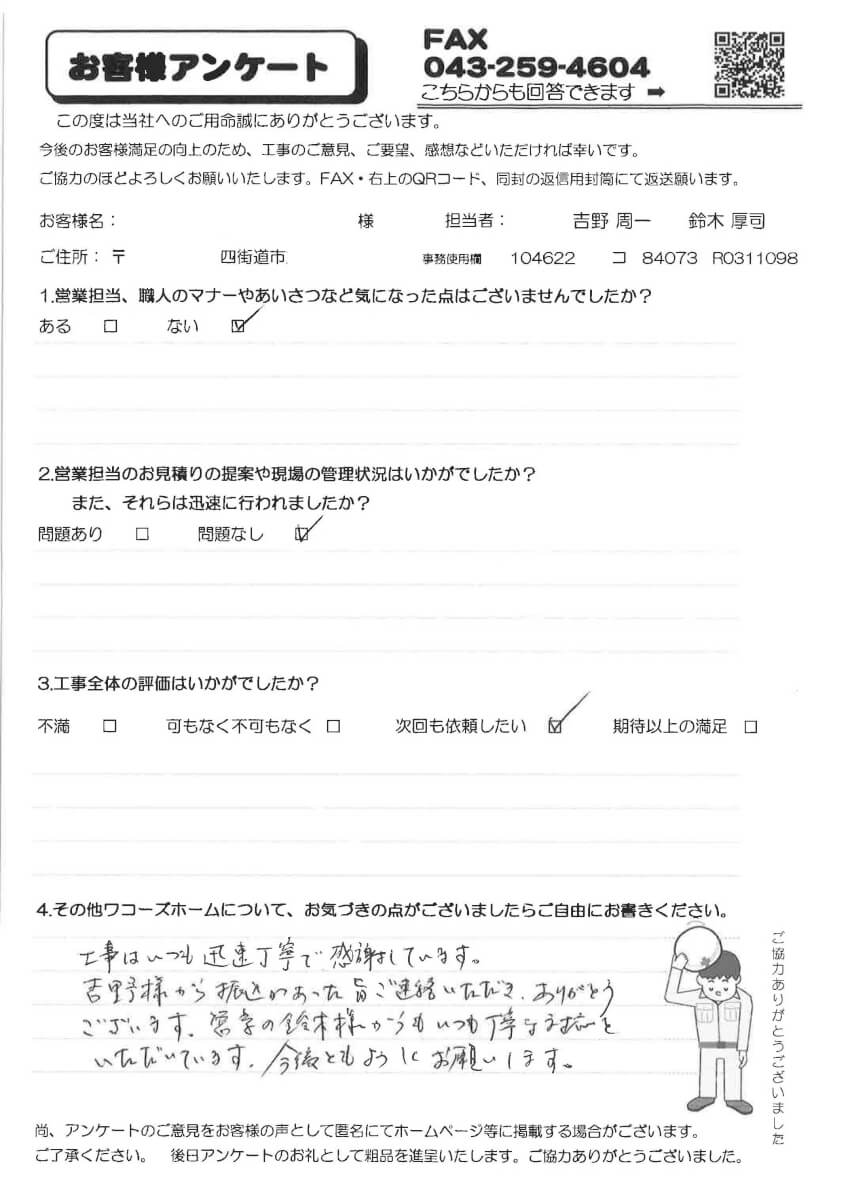 お客様アンケート
FAX
043-259-4604
こちらからも回答できます ➡
この度は当社へのご用命誠にありがとうございます。
今後のお客様満足の向上のため、工事のご意見、ご要望、感想などいただければ幸いです。
ご協力のほどよろしくお願いいたします。FAX・右上のQRコード、同封の返信用封筒にて返送願います。
お客様名： 様 担当者： 吉野 周一 鈴木 厚司
ご住所：〒 四街道市 事務使用欄 104622 コ 84073 R0311098
1.営業担当、職人のマナーやあいさつなど気になった点はございませんでしたか？
ある □ ない ☑
2.営業担当のお見積りの提案や現場の管理状況はいかがでしたか？
また、それらは迅速に行われましたか？
問題あり □ 問題なし ☑
3.工事全体の評価はいかがでしたか？
不満 □ 可もなく不可もなく □ 次回も依頼したい ☑ 期待以上の満足 □
4.その他ワコーズホームについて、お気づきの点がございましたらご自由にお書きください。
工事はいつも迅速丁寧で感謝しています。
吉野様から振込があった旨ご連絡いただき、ありがとう
ございます。営業の鈴木様からもいつも丁寧な対応を
いただいています。今後ともよろしくお願いします。
ご協力ありがとうございました
尚、アンケートのご意見をお客様の声として匿名にてホームページ等に掲載する場合がございます。
ご了承ください。 後日アンケートのお礼として粗品を進呈いたします。ご協力ありがとうございました。